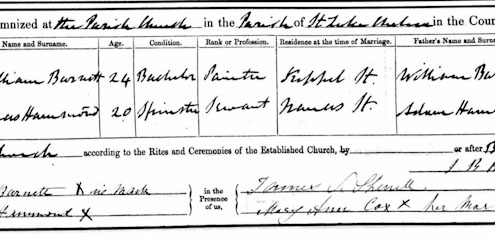 mnized at the Parish Church in the Parish of St Luke Chelsea in the Coun
Name and Surname. Age. Condition. Rank or Profession. Residence at the time of Marriage. Father's Name and Surn
lliam Burnett 24 Bachelor Painter Keppel St. William Bu
Hammond 20 Spinster Servant St. Adam Ham
Church according to the Rites and Ceremonies of the Established Church, by or after B
Burnett X his Mark in the Presence of us, James S
Hammond X Mary Ann Cox X her Mar